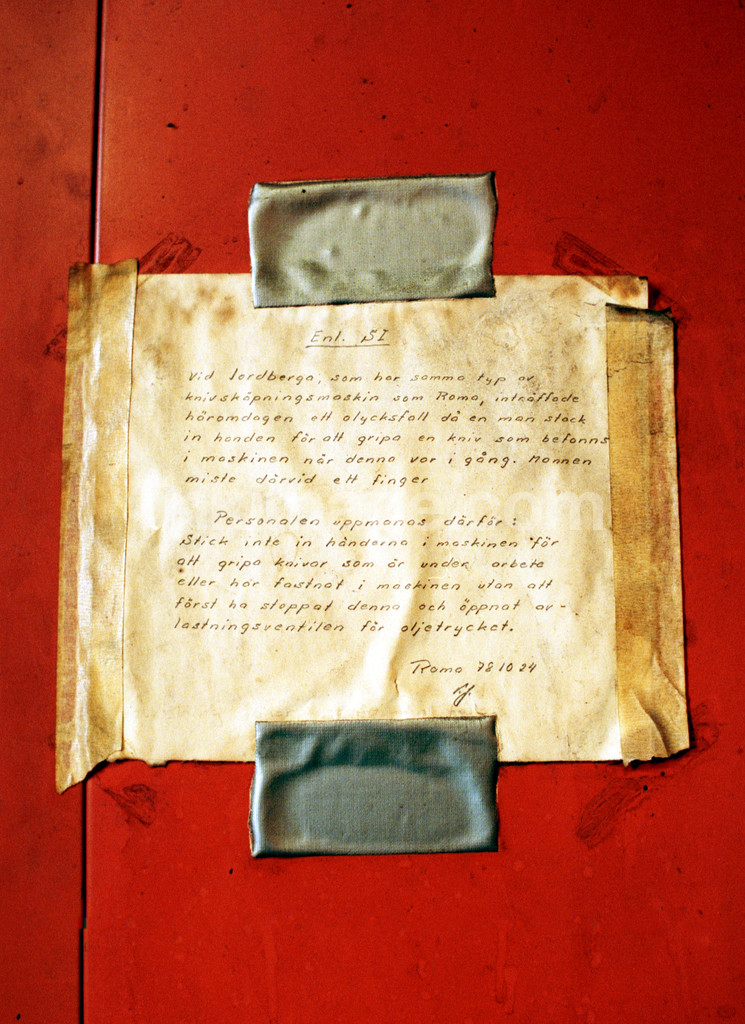 Enl. SI
Vid Jordberga, som har samma typ av
knivsköpningsmaskin som Roma, inträffade
häromdagen ett olycksfall då en man stack
in handen för att gripa en kniv som befanns
i maskinen när denna var i gång. Mannen
miste därvid ett finger
Personalen uppmanas därför:
Stick inte in händerna i maskinen för
att gripa knivar som är under arbete
eller har fastnat i maskinen utan att
först ha stoppat denna och öppnat av-
lastningsventilen för oljetrycket.
Roma 78 10 24